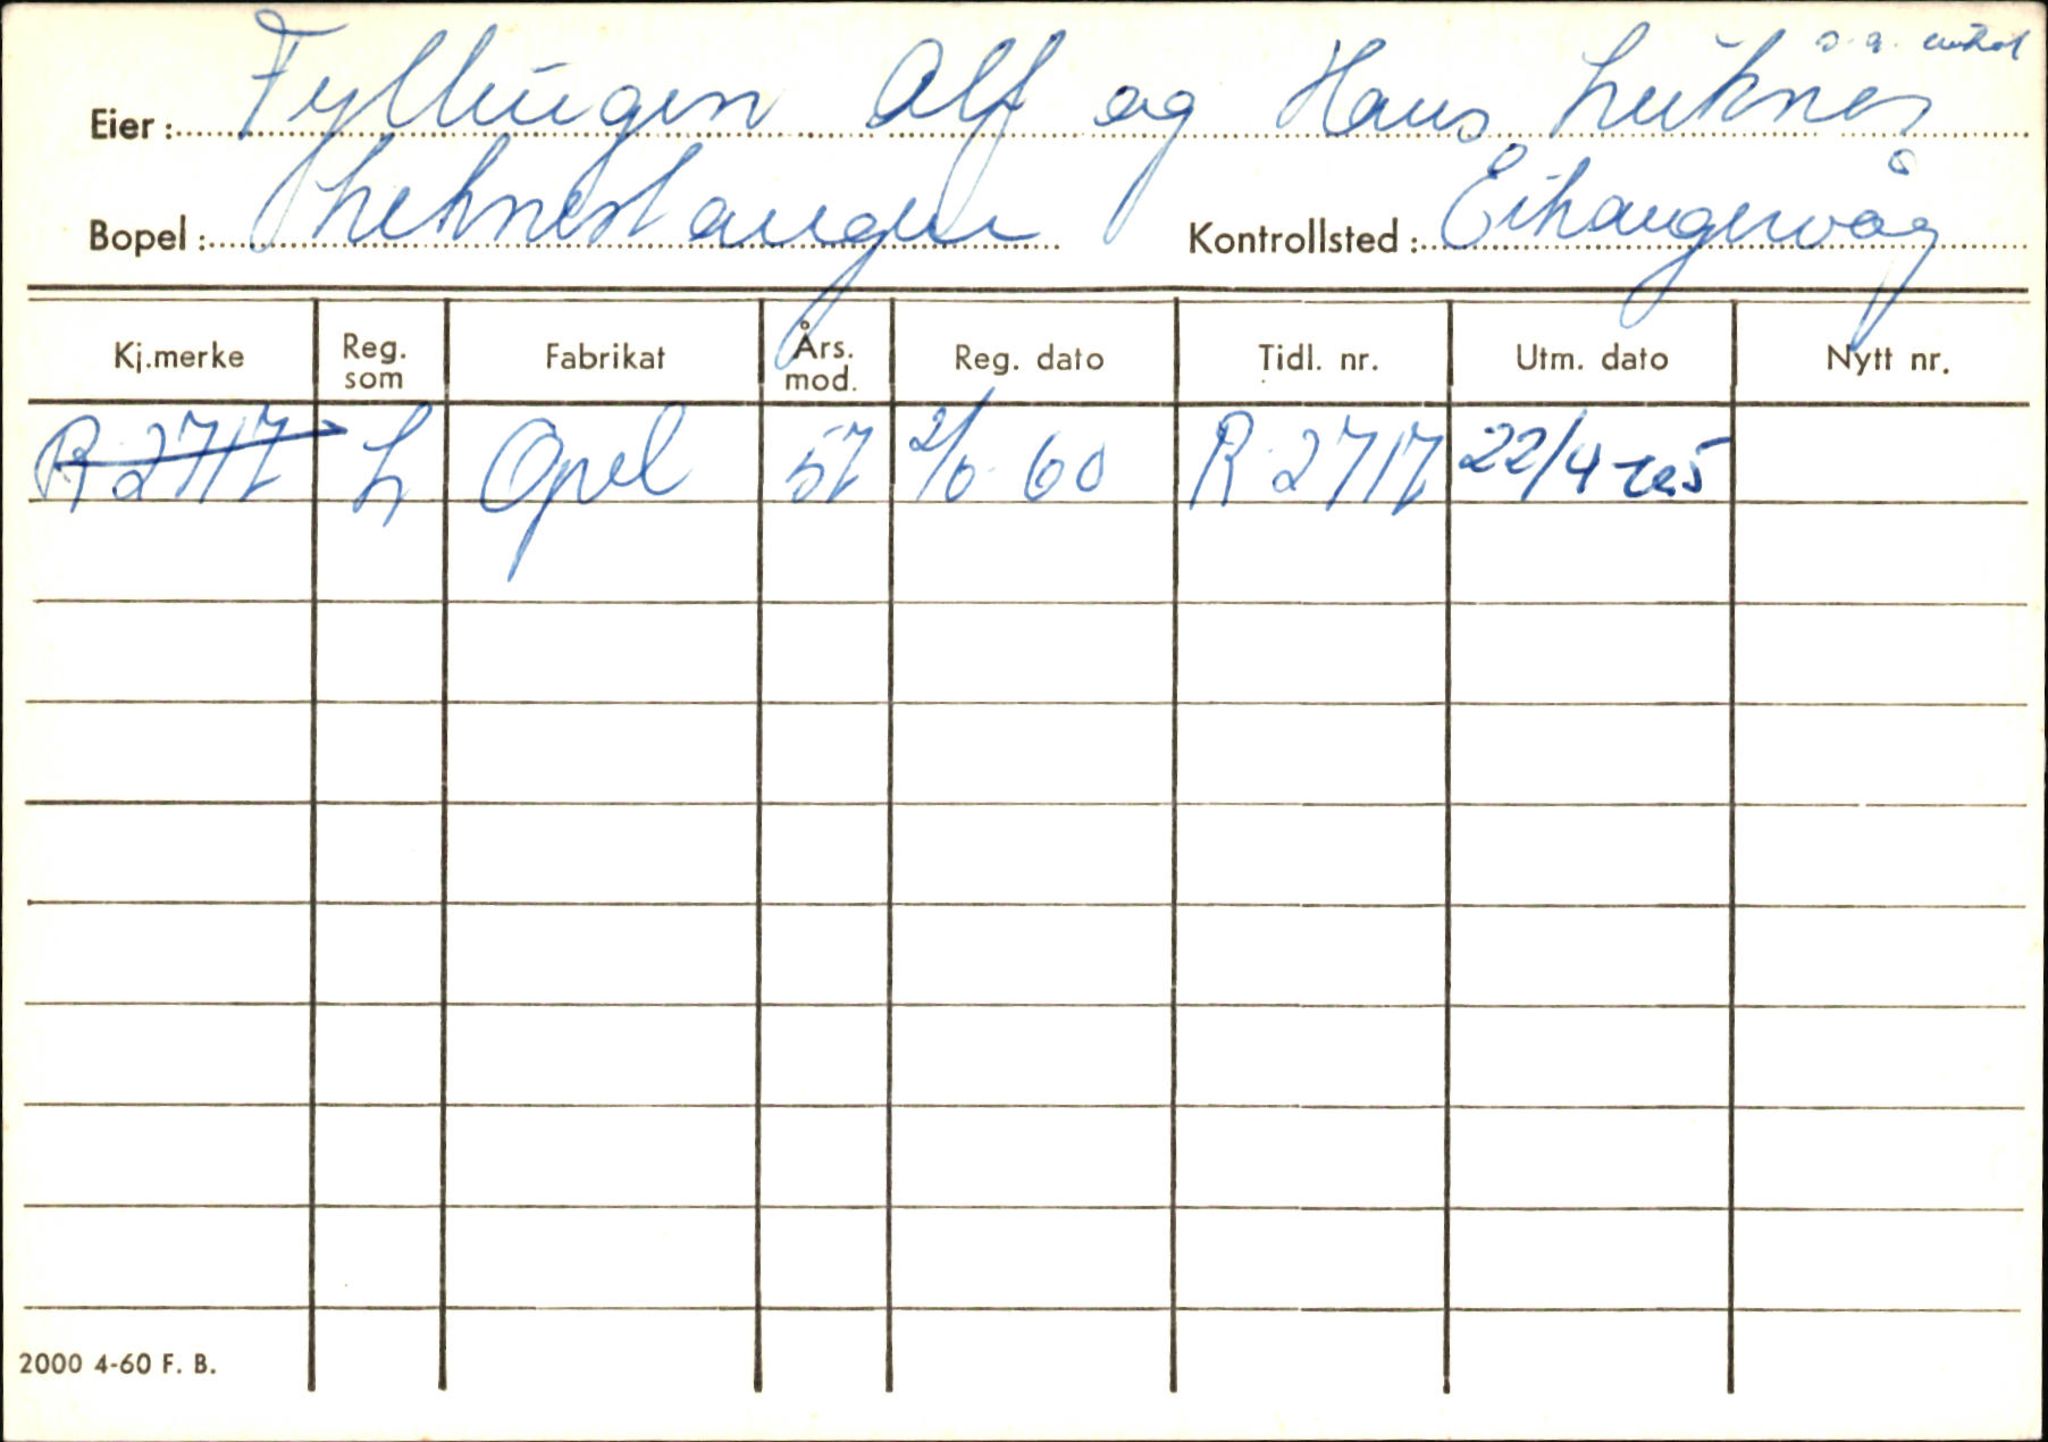 Eier: Fyllingen Alf og Hans Leiknes
Bopel: Leknestangen Kontrollsted: Eikangervåg
Kj.merke Reg. som Fabrikat Års. mod. Reg. dato Tidl. nr. Utm. dato Nytt nr.
R-2717 L Opel 57 2/6-60 R-2717 22/4
2000 4-60 F. B.